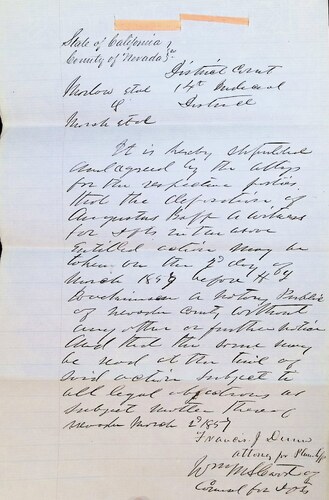 State of California
County of Nevada } ss
District Court
14th Judicial
District
Marlow et al
vs
Marsh et al
It is hereby stipulated
and agreed by the attys
for the respective parties
that the deposition of
Augustus a witness
for in the above
entitled action may be
taken on the day of
March 1857 before H
a Notary Public
of Nevada County without
any other or further notice
And that the same may
be read at the trial of
said action subject to
all legal objections as
subject matter thereof
Nevada March 2d 1857
Francis J. Dunn
attorney for Plaintiff
Wm M Stewart
Counsel for